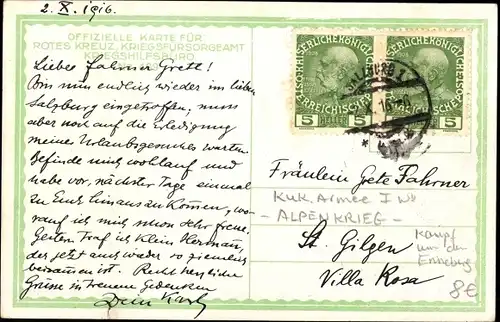 2. X. 1916.
OFFIZIELLE KARTE FÜR
ROTES KREUZ, KRIEGSFÜRSORGEAMT
KRIEGSHILFSBÜRO
Liebes Fahrner Gretl!
Bin nun endlich wieder im lieben
Salzburg eingetroffen; muss
aber noch auf die Erledigung
meines Urlaubsgesuches warten.
Befinde mich wohlauf und
habe vor, nächster Tage einmal
zu Euch hinaus zu kommen, wo-
rauf ich mich schon sehr freue.
Gestern traf ich Klein Herman,
der jetzt auch wieder so ziemlich
beisammen ist. Recht herzliche
Grüsse in treuem Gedenken
Dein Karl
5 HELLER 5
5
Fräulein Grete Fahrner
KuK. Armee I Wk
- ALPENKRIEG -
St. Gilgen
Kampf
um den
Villa Rosa
8€